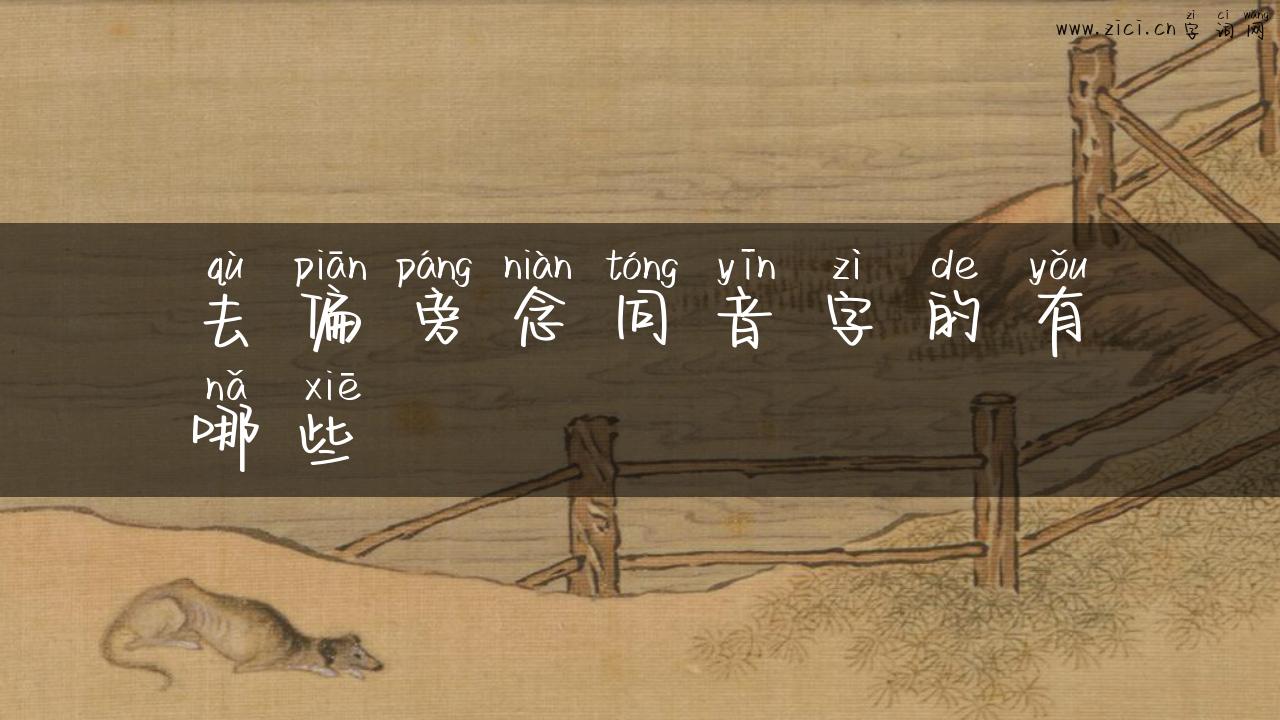 zi ci wang
www.zici.cn字词网
qù piān páng niàn tóng yīn zì de yǒu
去偏旁念同音字的有
nǎ xiē
哪些